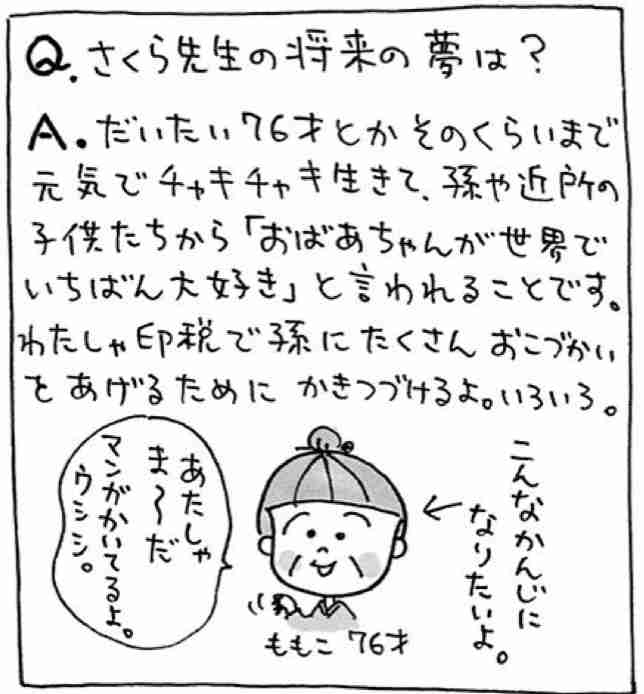 Q.さくら先生の将来の夢は？
A.だいたい76才とかそのくらいまで
元気でチャキチャキ生きて、孫や近所の
子供たちから「おばあちゃんが世界で
いちばん大好き」と言われることです。
わたしゃ印税で孫にたくさんおこづかい
をあげるためにかきつづけるよ。いろいろ。
こんなかんじに
なりたいよ。
あたしゃ
ま〜だ
マンガかいてるよ。
ウシシ。
ももこ 76才